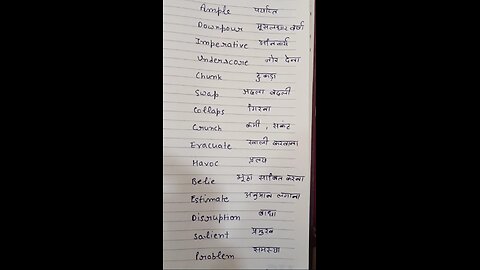 Ample पर्याप्त
Downpour मूसलाधार वर्षा
Imperative अनिवार्य
Underscore जोर देना
Chunk टुकड़ा
Swap अदला बदली
Collaps गिरना
Crunch कमी, संकट
Evacuate खाली करवाना
Havoc प्रलय
Belie झूठा साबित करना
Estimate अनुमान लगाना
Disruption बाधा
Salient प्रमुख
Problem समस्या